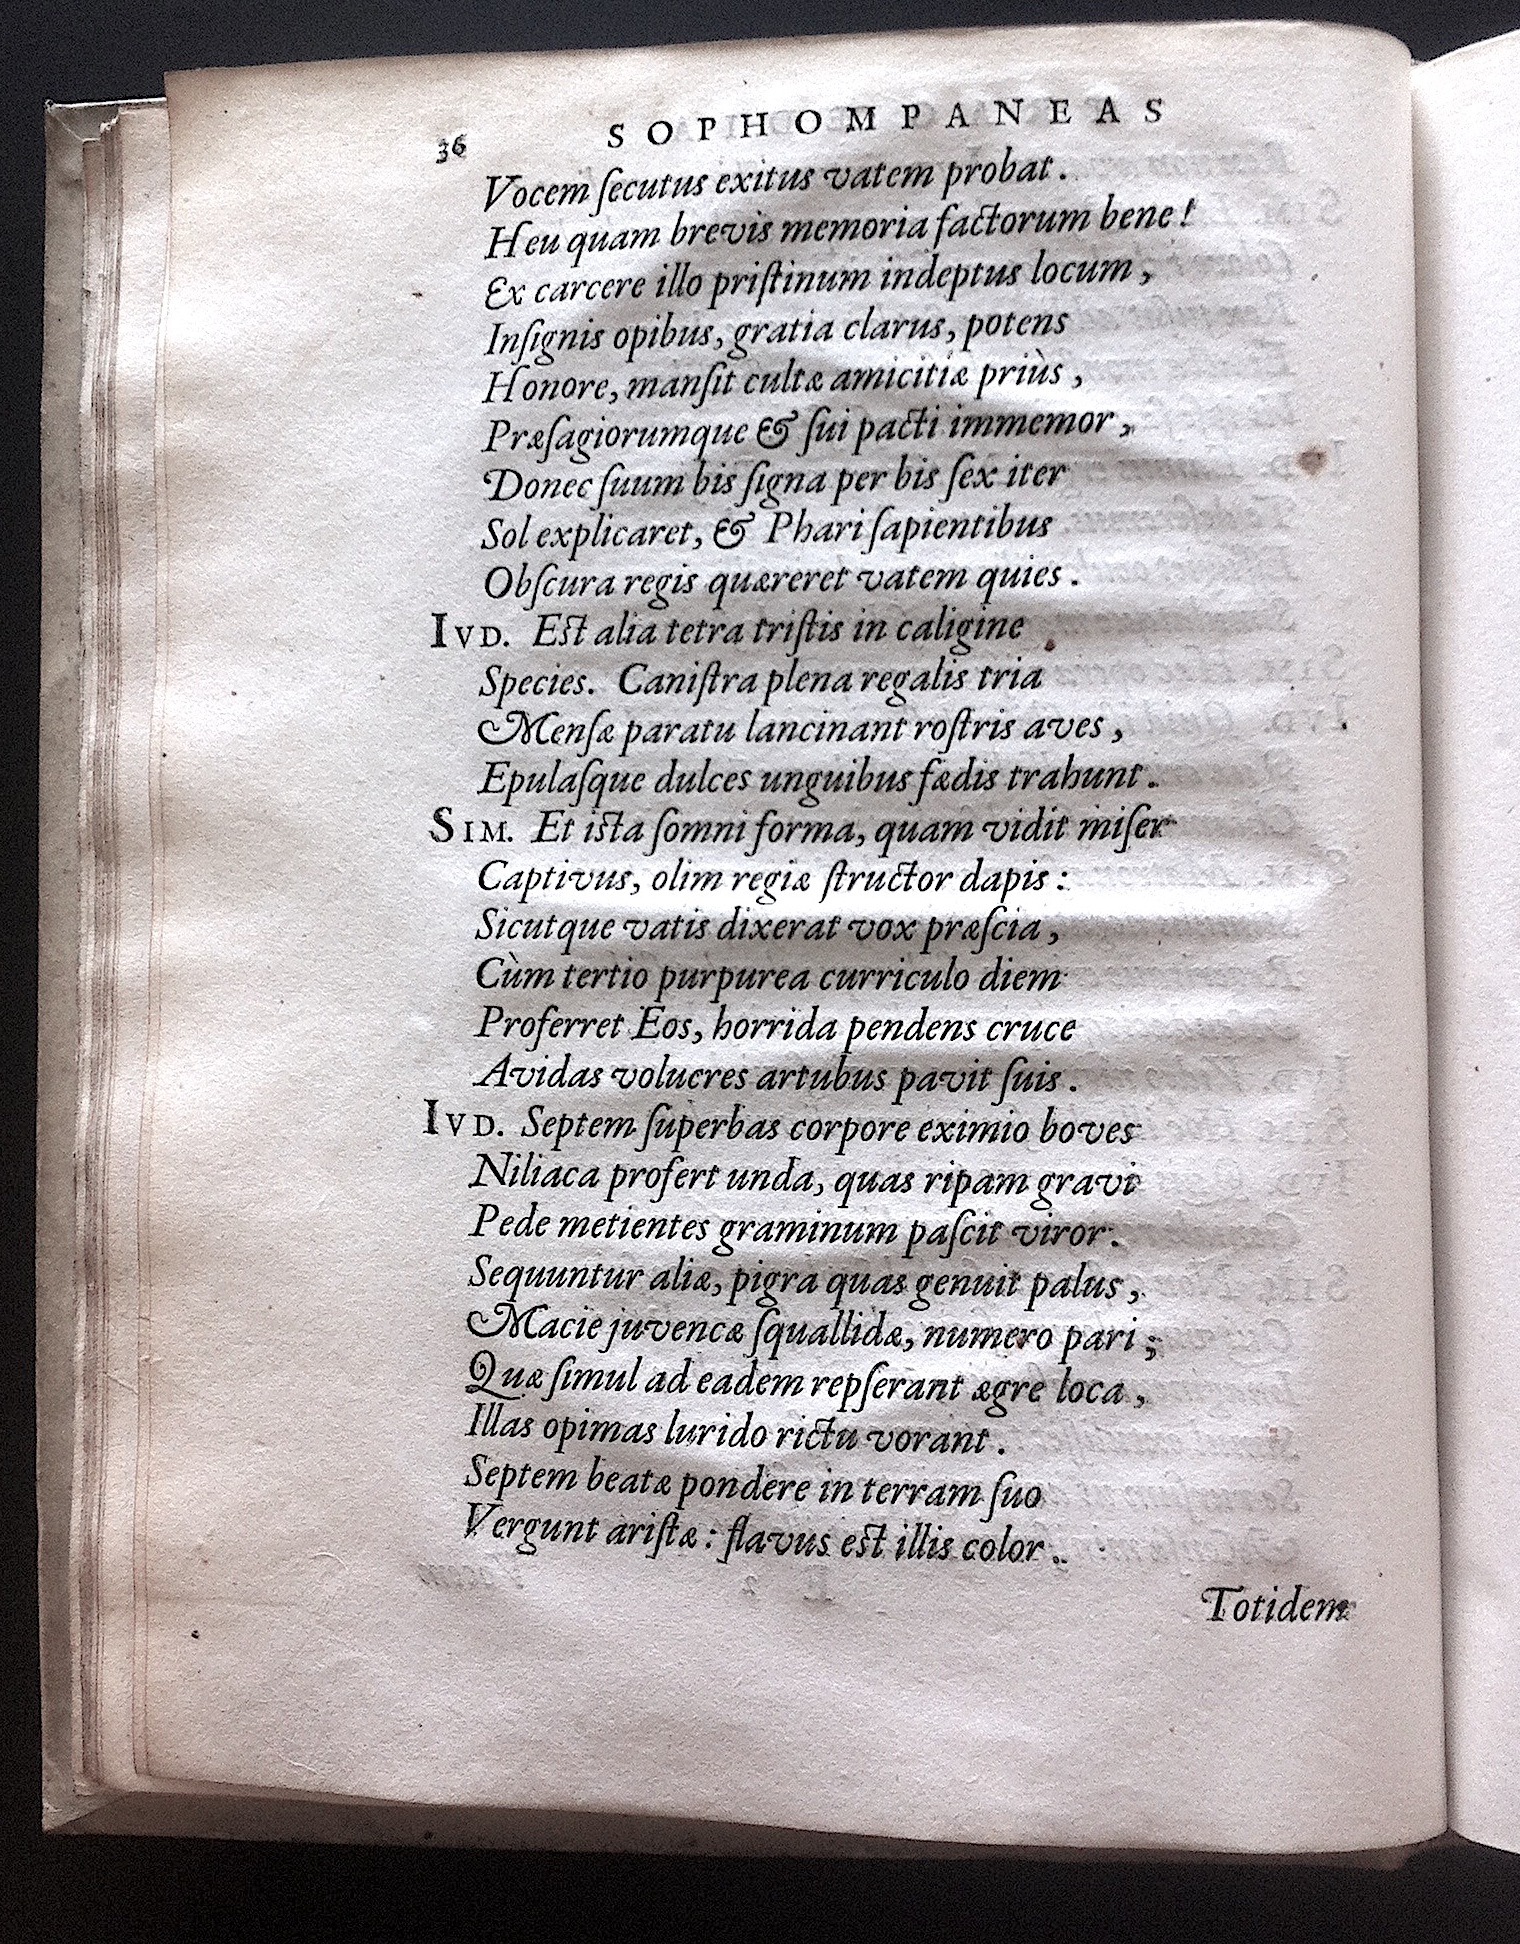 36 SOPHOMPANEAS
Vocem ſecutus exitus vatem probat.
Heu quam brevis memoria factorum bene!
Ex carcere illo priſtinum indeptus locum,
Inſignis opibus, gratia clarus, potens
Honore, manſit cultæ amicitiæ priùs,
Præſagiorumque & ſui pacti immemor,
Donec ſuum bis ſigna per bis ſex iter
Sol explicaret, & Phari ſapientibus
Obſcura regis quæreret vatem quies.
IVD. Est alia tetra triſtis in caligine
Species. Caniſtra plena regalis tria
Menſæ paratu lancinant roſtris aves,
Epulaſque dulces unguibus fædis trahunt.
SIM. Et ista ſomni forma, quam vidit miſer
Captivus, olim regiæ ſtructor dapis:
Sicutque vatis dixerat vox præſcia,
Cùm tertio purpurea curriculo diem
Proferret Eos, horrida pendens cruce
Avidas volucres artubus pavit ſuis.
IVD. Septem ſuperbas corpore eximio boves
Niliaca profert unda, quas ripam gravi
Pede metientes graminum paſcit viror.
Sequuntur aliæ, pigra quas genuit palus,
Macie juvencæ ſquallidæ, numero pari;
Quæ ſimul ad eadem repſerant ægre loca,
Illas opimas lurido rictu vorant.
Septem beatæ pondere in terram ſuo
Vergunt ariſtæ: flavus est illis color.
Totidem